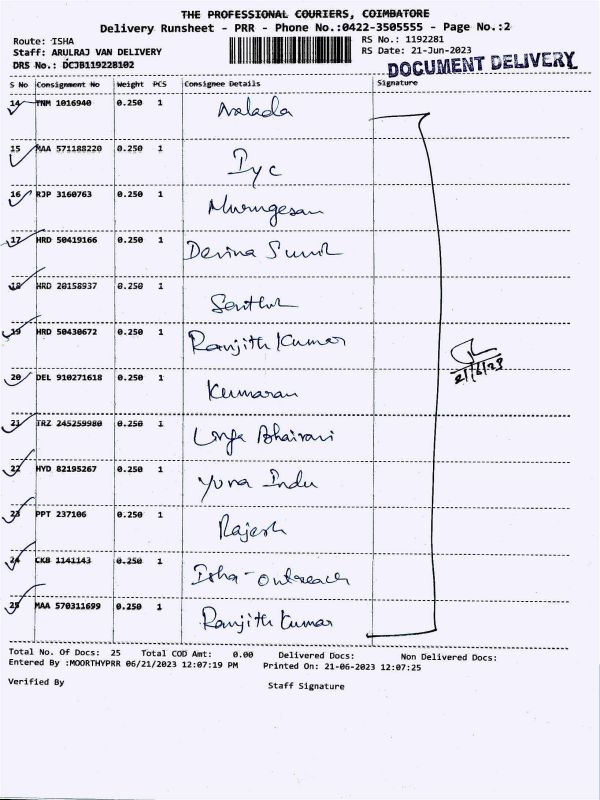 THE PROFESSIONAL COURIERS, COIMBATORE
Delivery Runsheet - PRR - Phone No.:0422-3505555 - Page No.:2
Route: ISHA
RS No.: 1192281
Staff: ARULRAJ VAN DELIVERY
RS Date: 21-Jun-2023
DRS No.: DCJB119228102
DOCUMENT DELIVERY
S No Consignment No Weight PCS Consignee Details Signature
14 TNM 1016940 0.250 1 Nalada
15 MAA 571188220 0.250 1 Iyc
16 RJP 3160763 0.250 1 Murugesan
17 HRD 50419166 0.250 1 Devina Sunil
18 HRD 20158937 0.250 1 Senthil
19 HRD 50430672 0.250 1 Ranjith Kumar
20 DEL 910271618 0.250 1 Kumaran
21 TRZ 245259980 0.250 1 Linga Bhairavi
22 HYD 82195267 0.250 1 Yuva Indu
23 PPT 237106 0.250 1 Rajesh
24 CKB 1141143 0.250 1 Isha-outreach
25 MAA 570311699 0.250 1 Ranjith Kumar
21/6/23
Total No. Of Docs: 25 Total COD Amt: 0.00 Delivered Docs: Non Delivered Docs:
Entered By :MOORTHYPRR 06/21/2023 12:07:19 PM Printed On: 21-06-2023 12:07:25
Verified By Staff Signature